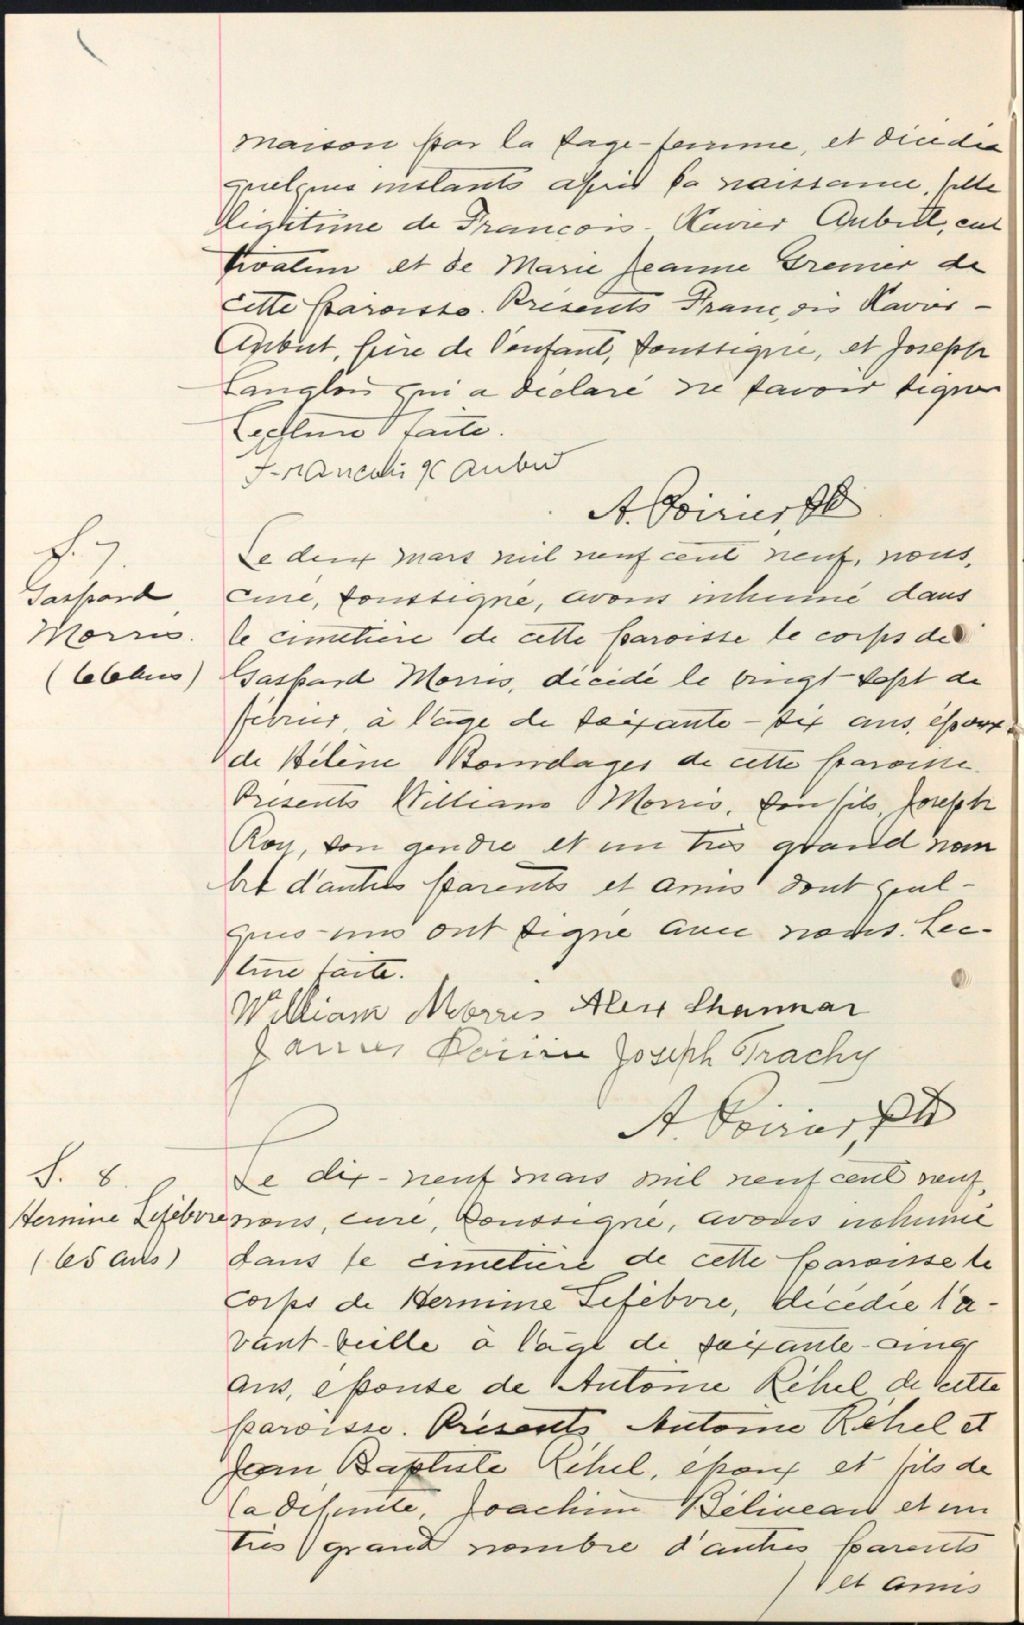 maison par la sage-femme, et décédée
quelques instants après sa naissance, fille
légitime de François-Xavier Aubut, cul
tivateur et de Marie Jeanne Grenier de
cette paroisse. Présents François Xavier -
Aubut, père de l'enfant, soussigné, et Joseph
Langlois qui a déclaré ne savoir signer
Lecture faite.
Francois X Aubut
A. Poirier Ptr
S. 7
Gaspard
Morris.
(66 ans)
Le deux mars mil neuf cent neuf, nous,
curé, soussigné, avons inhumé dans
le cimetière de cette paroisse le corps de
Gaspard Morris, décédé le vingt-sept de
février, à l'âge de soixante-six ans, époux
de Hélène Bourdages de cette paroisse.
Présents William Morris, son fils, Joseph
Roy, son gendre et un très grand nom
bre d'autres parents et amis dont quel-
ques-uns ont signé avec nous. Lec-
ture faite.
William Morris Alex
James Poirier Joseph Trachy
A. Poirier, Ptr
S. 8
Hermine Lefébvre
(65 ans)
Le dix-neuf mars mil neuf cent neuf,
nous, curé, soussigné, avons inhumé
dans le cimetière de cette paroisse le
corps de Hermine Lefébvre, décédée l'a-
vant-veille à l'âge de soixante-cinq
ans, épouse de Antoine Réhel de cette
paroisse. Présents Antoine Réhel et
Jean Baptiste Réhel, époux et fils de
la défunte, Joachim Béliveau et un
très grand nombre d'autres parents
et amis